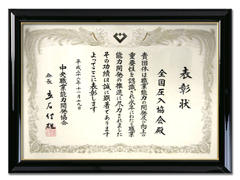 表彰状
全国圧入協会殿
貴団体は職業能力の開発及び向上の
重要性を認識され永年にわたり職業
能力開発の推進に尽力されました
その功績は誠に顕著であります
よってここに表彰します
中央職業能力開発協会
会長